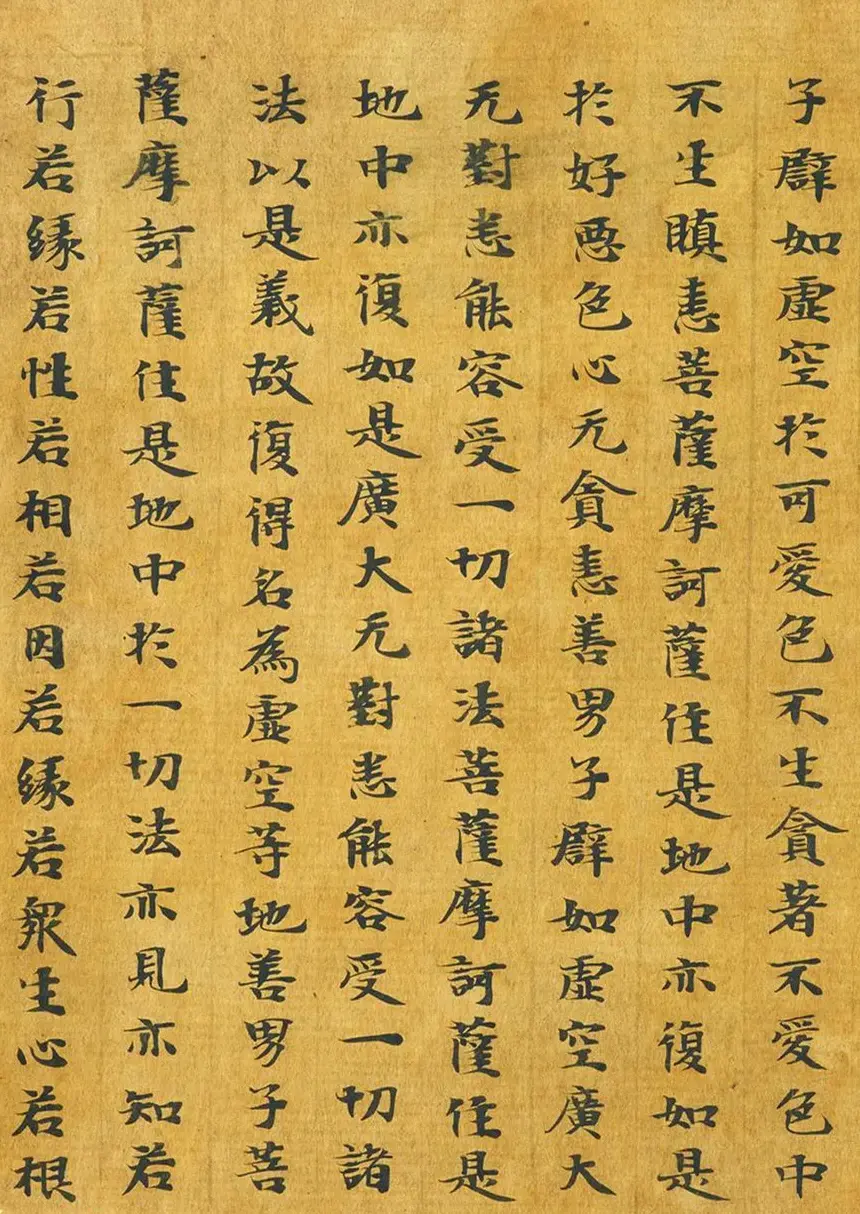 子譬如虛空於可愛色不生貪著不愛色中
不生瞋恚菩薩摩訶薩住是地中亦復如是
於好惡色心无貪恚善男子譬如虛空廣大
无對悉能容受一切諸法菩薩摩訶薩住是
地中亦復如是廣大无對悉能容受一切諸
法以是義故復得名為虛空等地善男子菩
薩摩訶薩住是地中於一切法亦見亦知若
行若緣若性若相若因若緣若眾生心若根